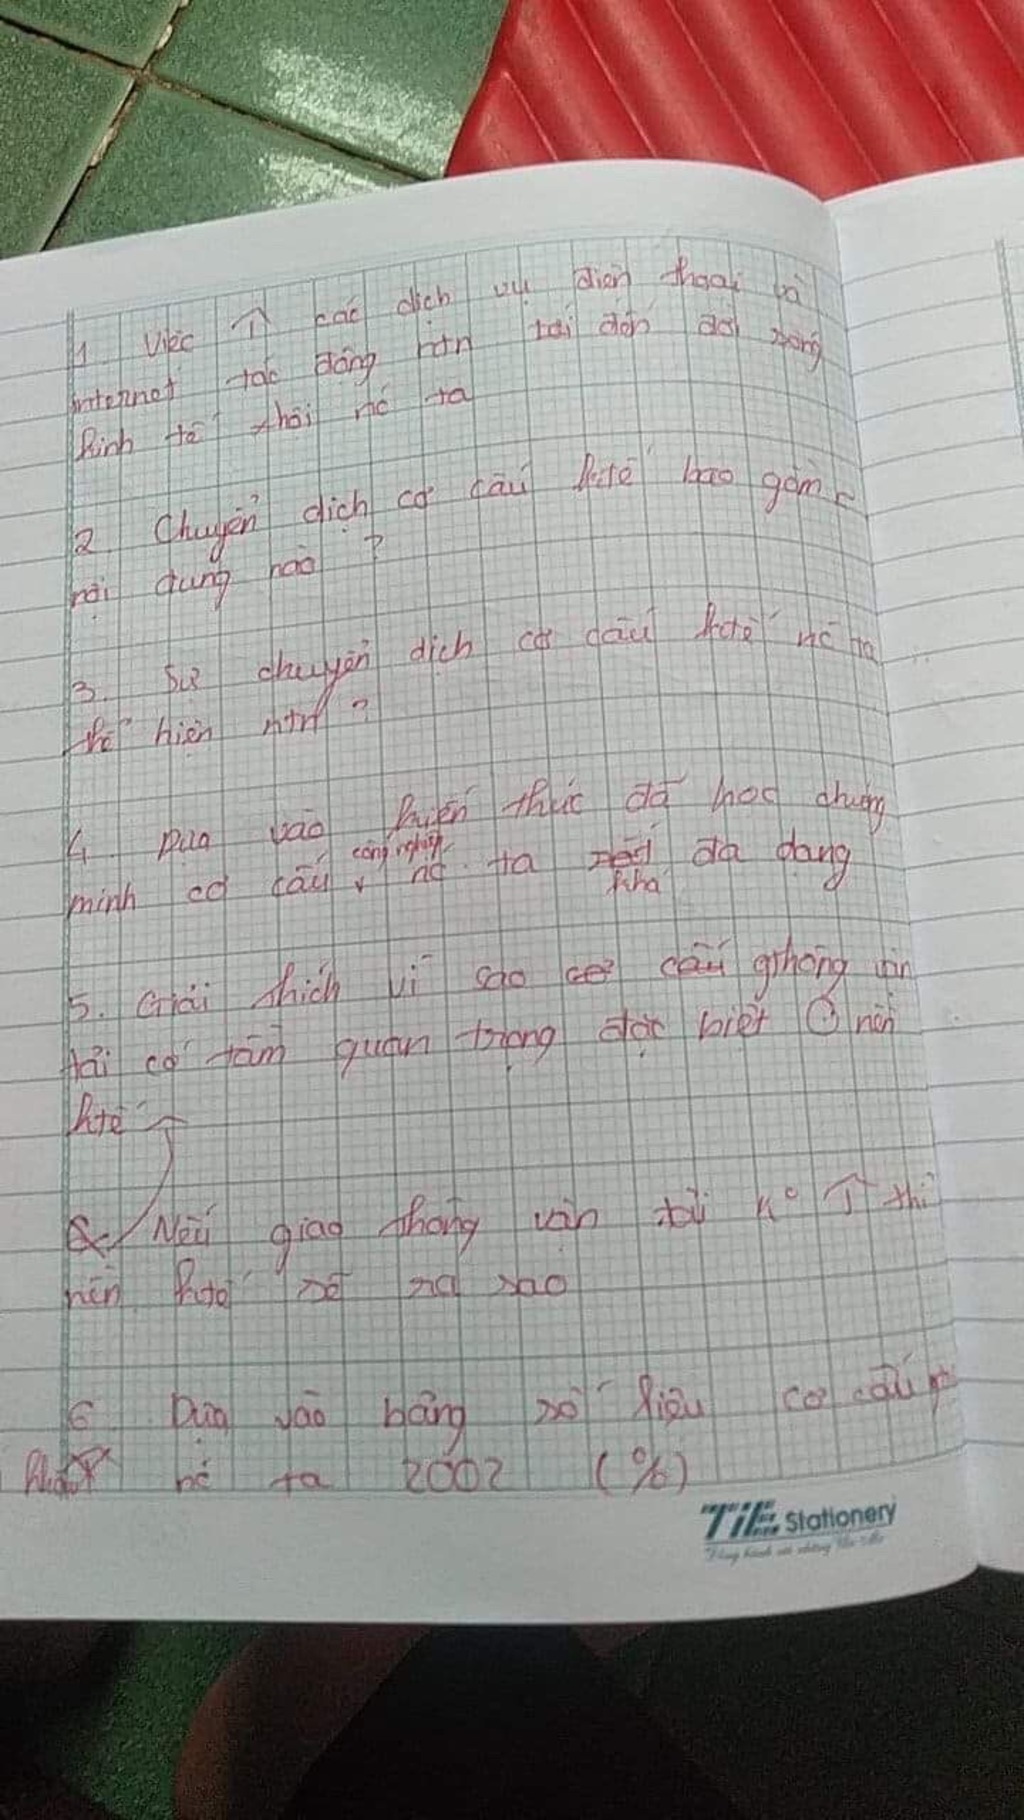 1 Việc ↑ các dịch vụ điện thoại và
internet tác động ntn tới đến đời sống
kinh tế xhội nc ta
2. Chuyển dịch cơ cấu ktế bao gồm
nội dung nào ?
3. Sự chuyển dịch cơ cấu ktế nc ta
thể hiện ntn ?
4. Dựa vào kiến thức đã học chứng
minh cơ cấu công nghiệp nc ta khá đa dạng
5. Giải thích vì sao cơ cấu gthông vận
tải có tầm quan trọng đặc biệt nền
ktế
Nếu giao thông vận tải k° ↑ thì
nền ktế sẽ ra sao
6 Dựa vào bảng số liệu cơ cấu
nc ta 2002 (%)
TiE Stationery